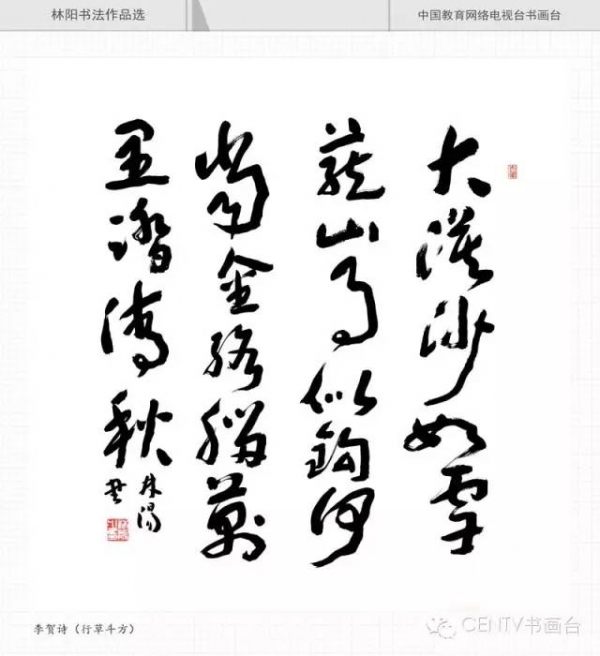 林阳书法作品选
中国教育网络电视台书画台
大漠沙如雪
燕山月似鉤何
當金絡腦萬
里踏清秋
林陽
书
李贺诗（行草斗方）
CENTV书画台